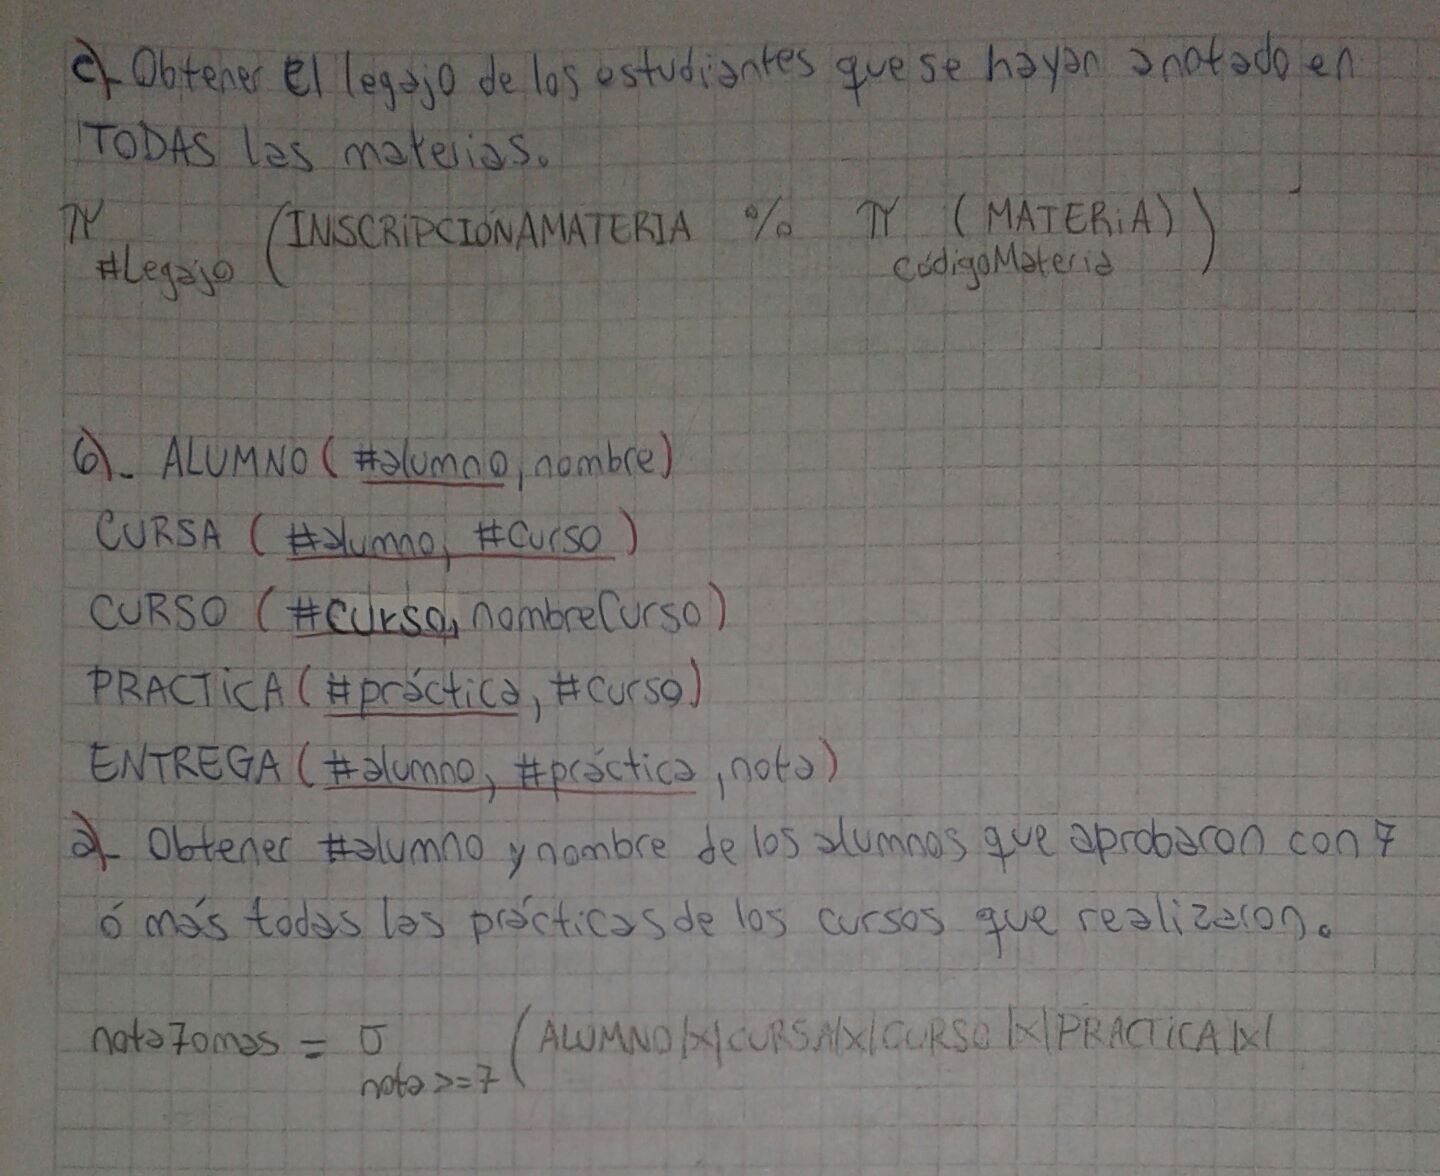 c)- Obtener el legajo de los estudiantes que se hayan anotado en
TODAS las materias.
π #Legajo (INSCRIPCIONAMATERIA % π códigoMateria (MATERIA))
6)- ALUMNO (#alumno, nombre)
CURSA (#alumno, #curso)
CURSO (#curso, nombreCurso)
PRACTICA (#práctica, #curso)
ENTREGA (#alumno, #práctica, nota)
a)- Obtener #alumno y nombre de los alumnos que aprobaron con 7
ó más todas las prácticas de los cursos que realizaron.
nota7omas = σ nota>=7 (ALUMNO |x| CURSA |x| CURSO |x| PRACTICA |x|